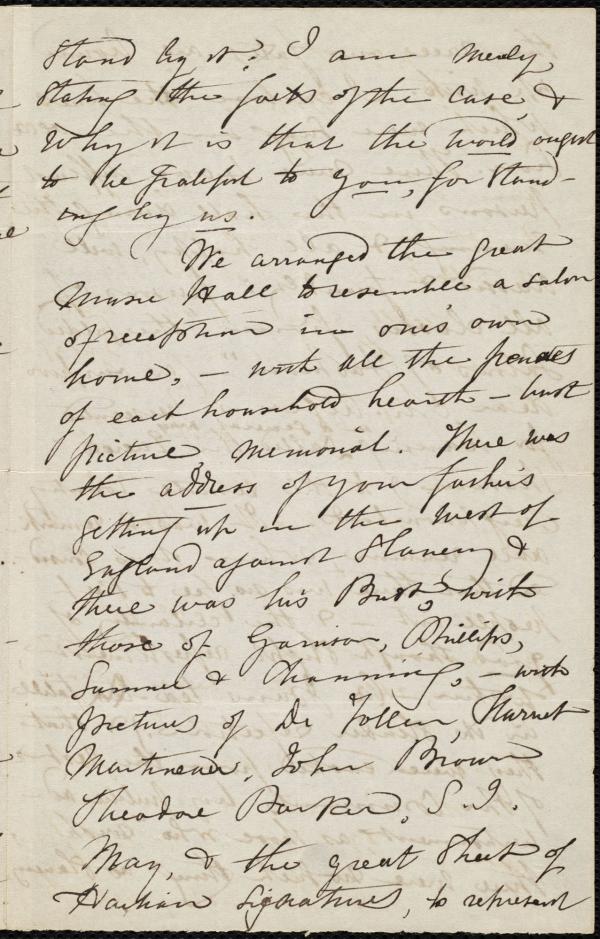 stand by it? I am merely
stating the facts of the case, &
why it is that the world ought
to be grateful to you, for stand-
ing by us.
We arranged the great
Music Hall to resemble a salon
of reception in one's own
home, — with all the penates
of each household hearth — bust
picture memorial. There was
the address of your father's
getting up in the west of
England against Slavery &
there was his Bust, with
those of Garrison, Phillips,
Sumner & Channing, — with
pictures of Dr Follen, Harriet
Martineau, John Brown
Theodore Parker, S. J.
May, & the great Sheet of
Haitian signatures, to represent